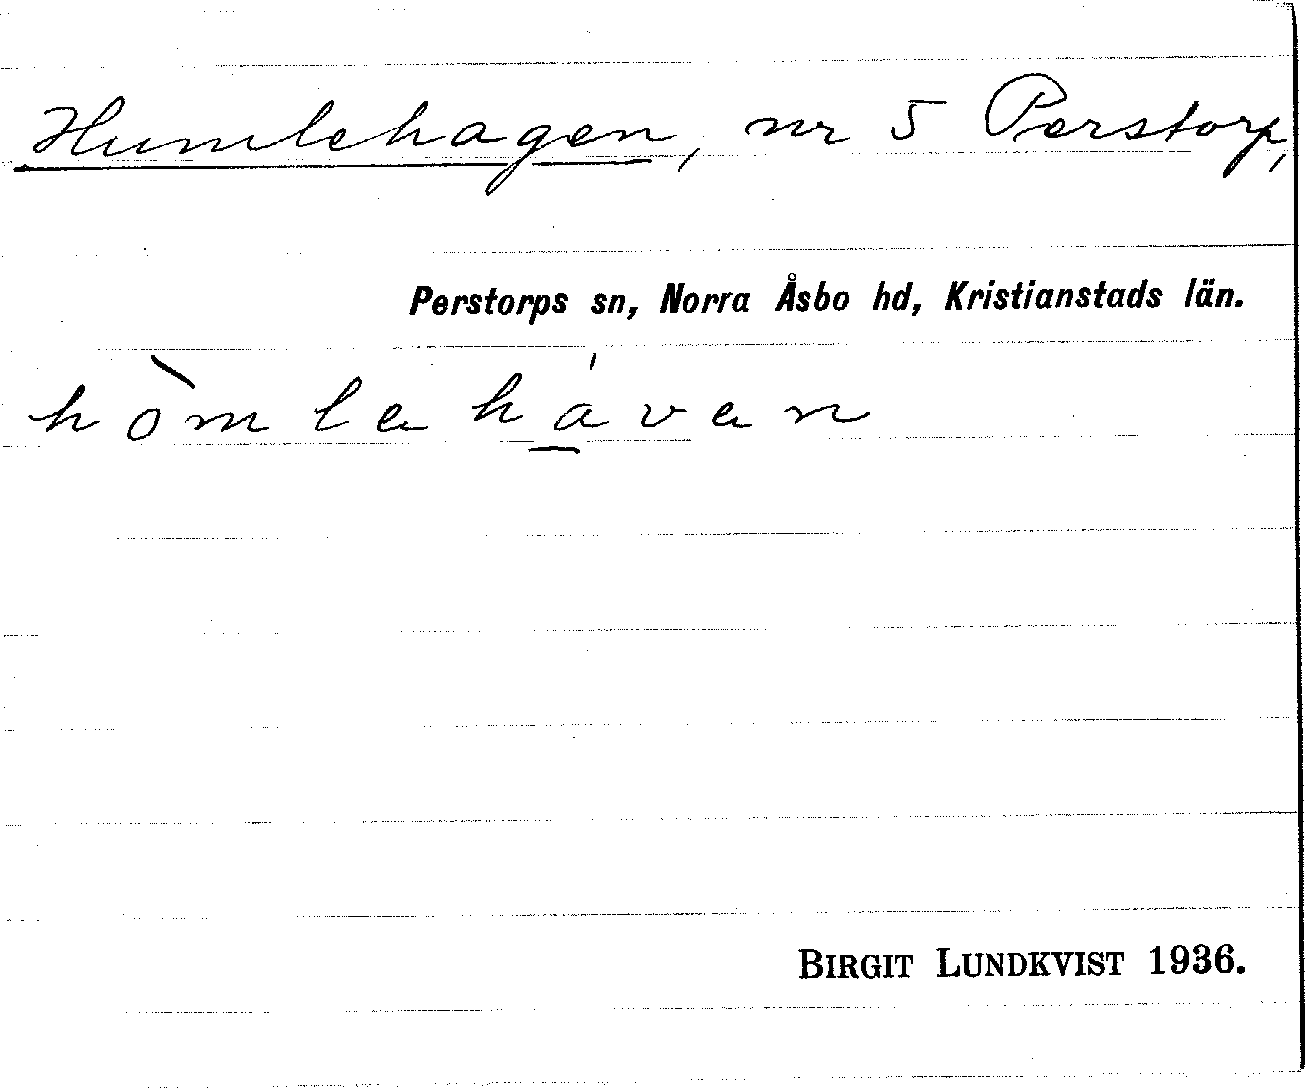 Humlehagen, nr 5 Perstorp,
Perstorps sn, Norra Åsbo hd, Kristianstads län.
hòmlahá̱van
BIRGIT LUNDKVIST 1936.